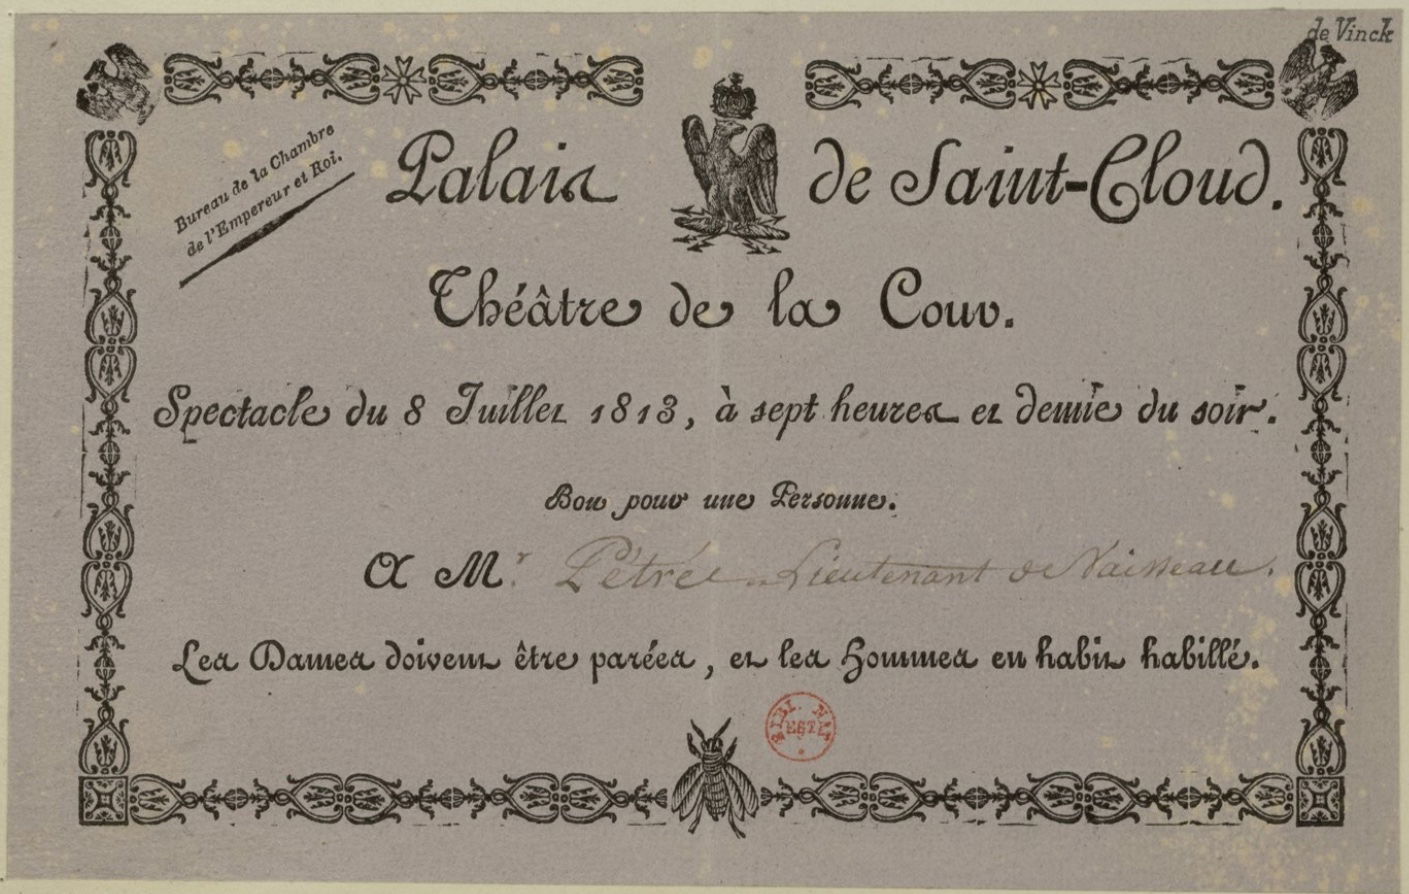 de Vinck
Bureau de la Chambre
de l'Empereur et Roi.
Palais de Saint-Cloud.
Théâtre de la Cour.
Spectacle du 8 Juillet 1813, à sept heures et demie du soir.
Bon pour une Personne.
A Mr. Pétrée Lieutenant de Vaisseau.
Les Dames doivent être parées, et les Hommes en habit habillé.
BIBL. NAT.
EST.